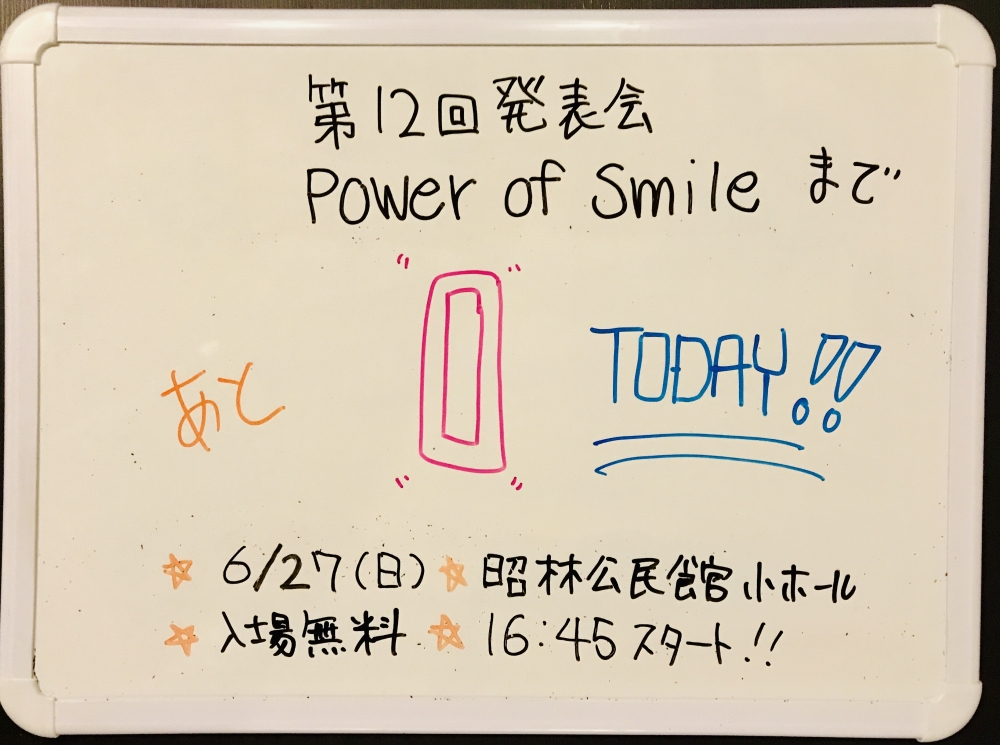 第12回発表会
Power of Smile まで
あと 0 TODAY!!
☆ 6/27(日) ☆ 昭林公民館 小ホール
☆ 入場無料 ☆ 16:45 スタート!!